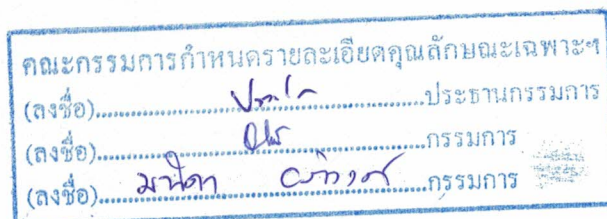 คณะกรรมการกำหนดรายละเอียดคุณลักษณะเฉพาะฯ
(ลงชื่อ)..............................ประธานกรรมการ
(ลงชื่อ)..............................กรรมการ
(ลงชื่อ)....มานิดา..............กรรมการ